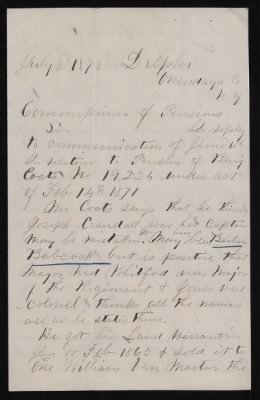 July 5 1872 Delphi
Onondaga Co
N Y
Commissioner of Pensions
Sir In reply
to communication of June
In relation to Pension of Benj
Coats No 19,224 under act
of Feb 14th 1871
Mr Coats says that he thinks
Joseph Crandall was his Captain
may be mistaken. May have been
Babcock but is positive that
Major had Whitford was Major
of the Regiment & Jones was
Colonel thinks all the names
are as he states them.
He got his Land warrant in
Jan or Feb 1865 & sold it to
one William Van the